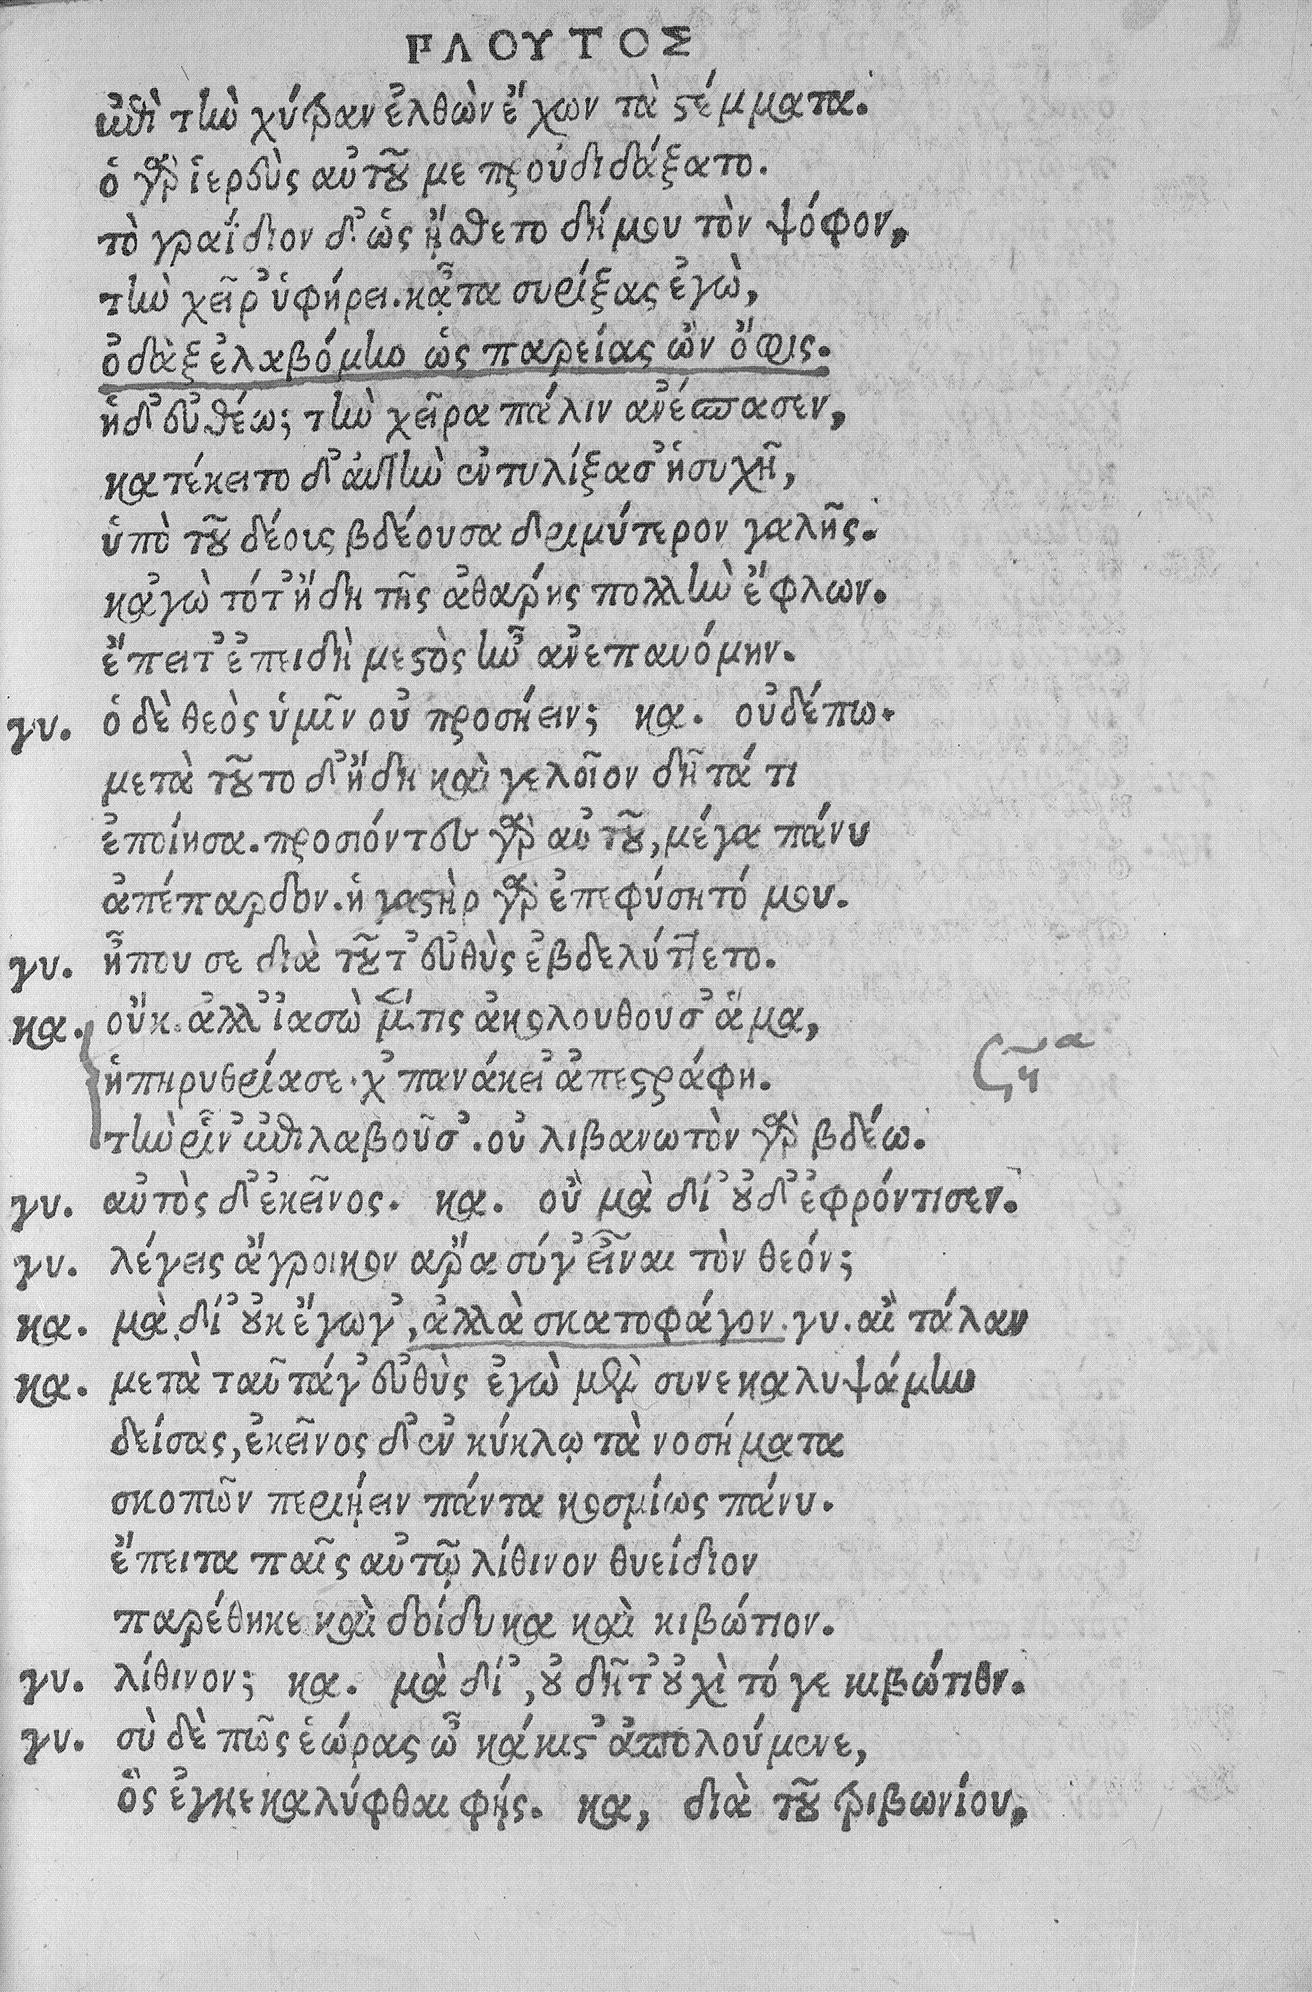 ΠΛΟΥΤΟΣ
ἐπὶ τὴν χύτραν ἐλθὼν ἔχων τὰ στέμματα.
ὁ γὰρ ἱερεὺς αὐτοῦ με προὐδιδάξατο.
τὸ γραΐδιον δ' ὡς ᾔσθετο δή μου τὸν ψόφον,
τὴν χεῖρ' ὑφήρει. κᾆτα συρίξας ἐγὼ,
ὀδὰξ ἐλαβόμην ὡς παρείας ὢν ὄφις.
ἡ δ' εὐθέως; τὴν χεῖρα πάλιν ἀνέσπασεν,
κατέκειτο δ' αὑτὴν ἐντυλίξασ' ἡσυχῆ,
ὑπὸ τοῦ δέους βδέουσα δριμύτερον γαλῆς.
κᾀγὼ τότ' ἤδη τῆς ἀθάρης πολλὴν ἔφλων.
ἔπειτ' ἐπειδὴ μεστὸς ἦν ἀνεπαυόμην.
γυ. ὁ δὲ θεὸς ὑμῖν οὐ προσήειν; κα. οὐδέπω.
μετὰ τοῦτο δ' ἤδη καὶ γελοῖον δῆτά τι
ἐποίησα. προσιόντος γὰρ αὐτοῦ, μέγα πάνυ
ἀπέπαρδον. ἡ γαστὴρ γὰρ ἐπεφύσητό μου.
γυ. ἦπου σε διὰ τοῦτ' εὐθὺς ἐβδελύττετο.
κα. οὔκ. ἀλλ' ἰασὼ μέν τις ἀκολουθοῦσ' ἅμα,
ὑπηρυθρίασε. χ' πανάκει' ἀπεστράφη.
τὴν ῥῖν' ἐπιλαβοῦσ'. οὐ λιβανωτὸν γὰρ βδέω.
γυ. αὐτὸς δ' ἐκεῖνος. κα. οὒ μὰ δί' οὐδ' ἐφρόντισεν.
γυ. λέγεις ἄγροικον ἄρα σύγ' εἶναι τὸν θεόν;
κα. μὰ δί' οὐκ ἔγωγ', ἀλλὰ σκατοφάγον. γυ. αἲ τάλαν
κα. μετὰ ταῦτάγ' εὐθὺς ἐγὼ μὲν συνεκαλυψάμην
δείσας, ἐκεῖνος δ' ἐν κύκλῳ τὰ νοσήματα
σκοπῶν περιῄειν πάντα κοσμίως πάνυ.
ἔπειτα παῖς αὐτῷ λίθινον θυείδιον
παρέθηκε καὶ δοίδυκα καὶ κιβώτιον.
γυ. λίθινον; κα. μὰ δί', οὐ δῆτ' οὐχὶ τό γε κιβώτιον.
γυ. σὺ δὲ πῶς ἑώρας ὦ κάκιστ' ἀπολούμενε,
ὃς ἐγκεκαλύφθαι φῄς. κα, διὰ τοῦ τριβωνίου,